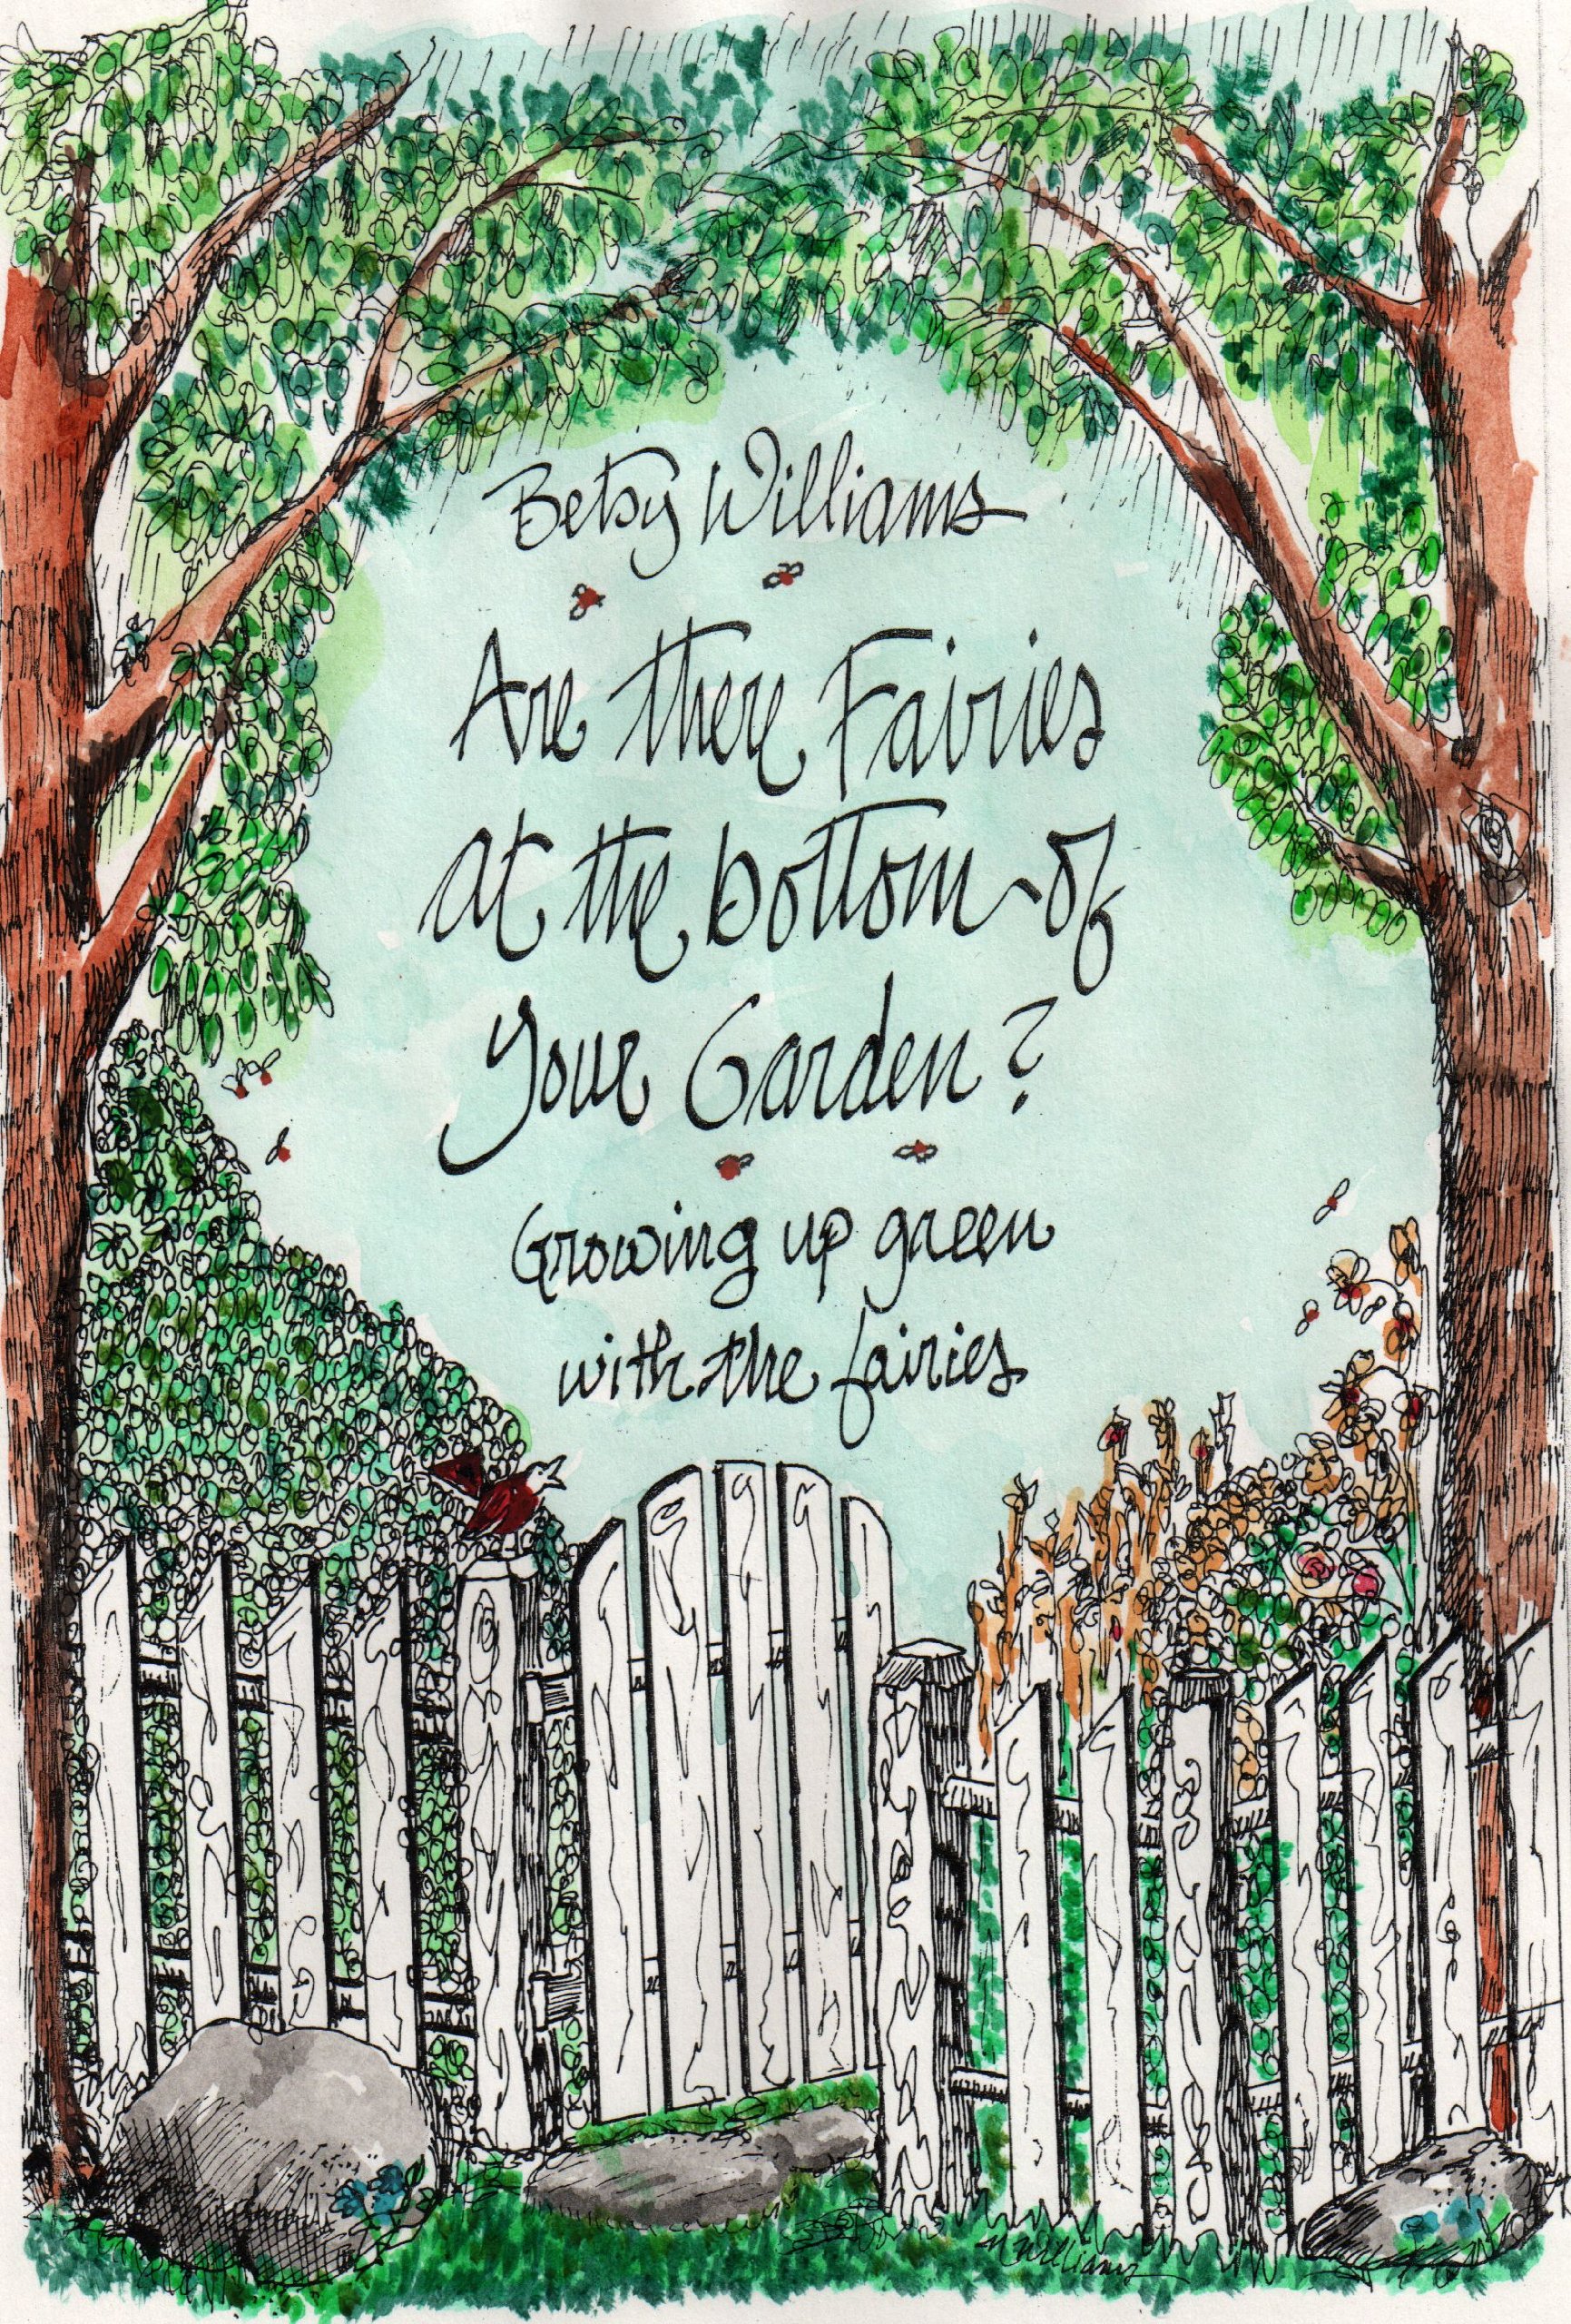 Betsy Williams
Are there Fairies
at the bottom of
Your Garden?
Growing up green
with the fairies
N Williams